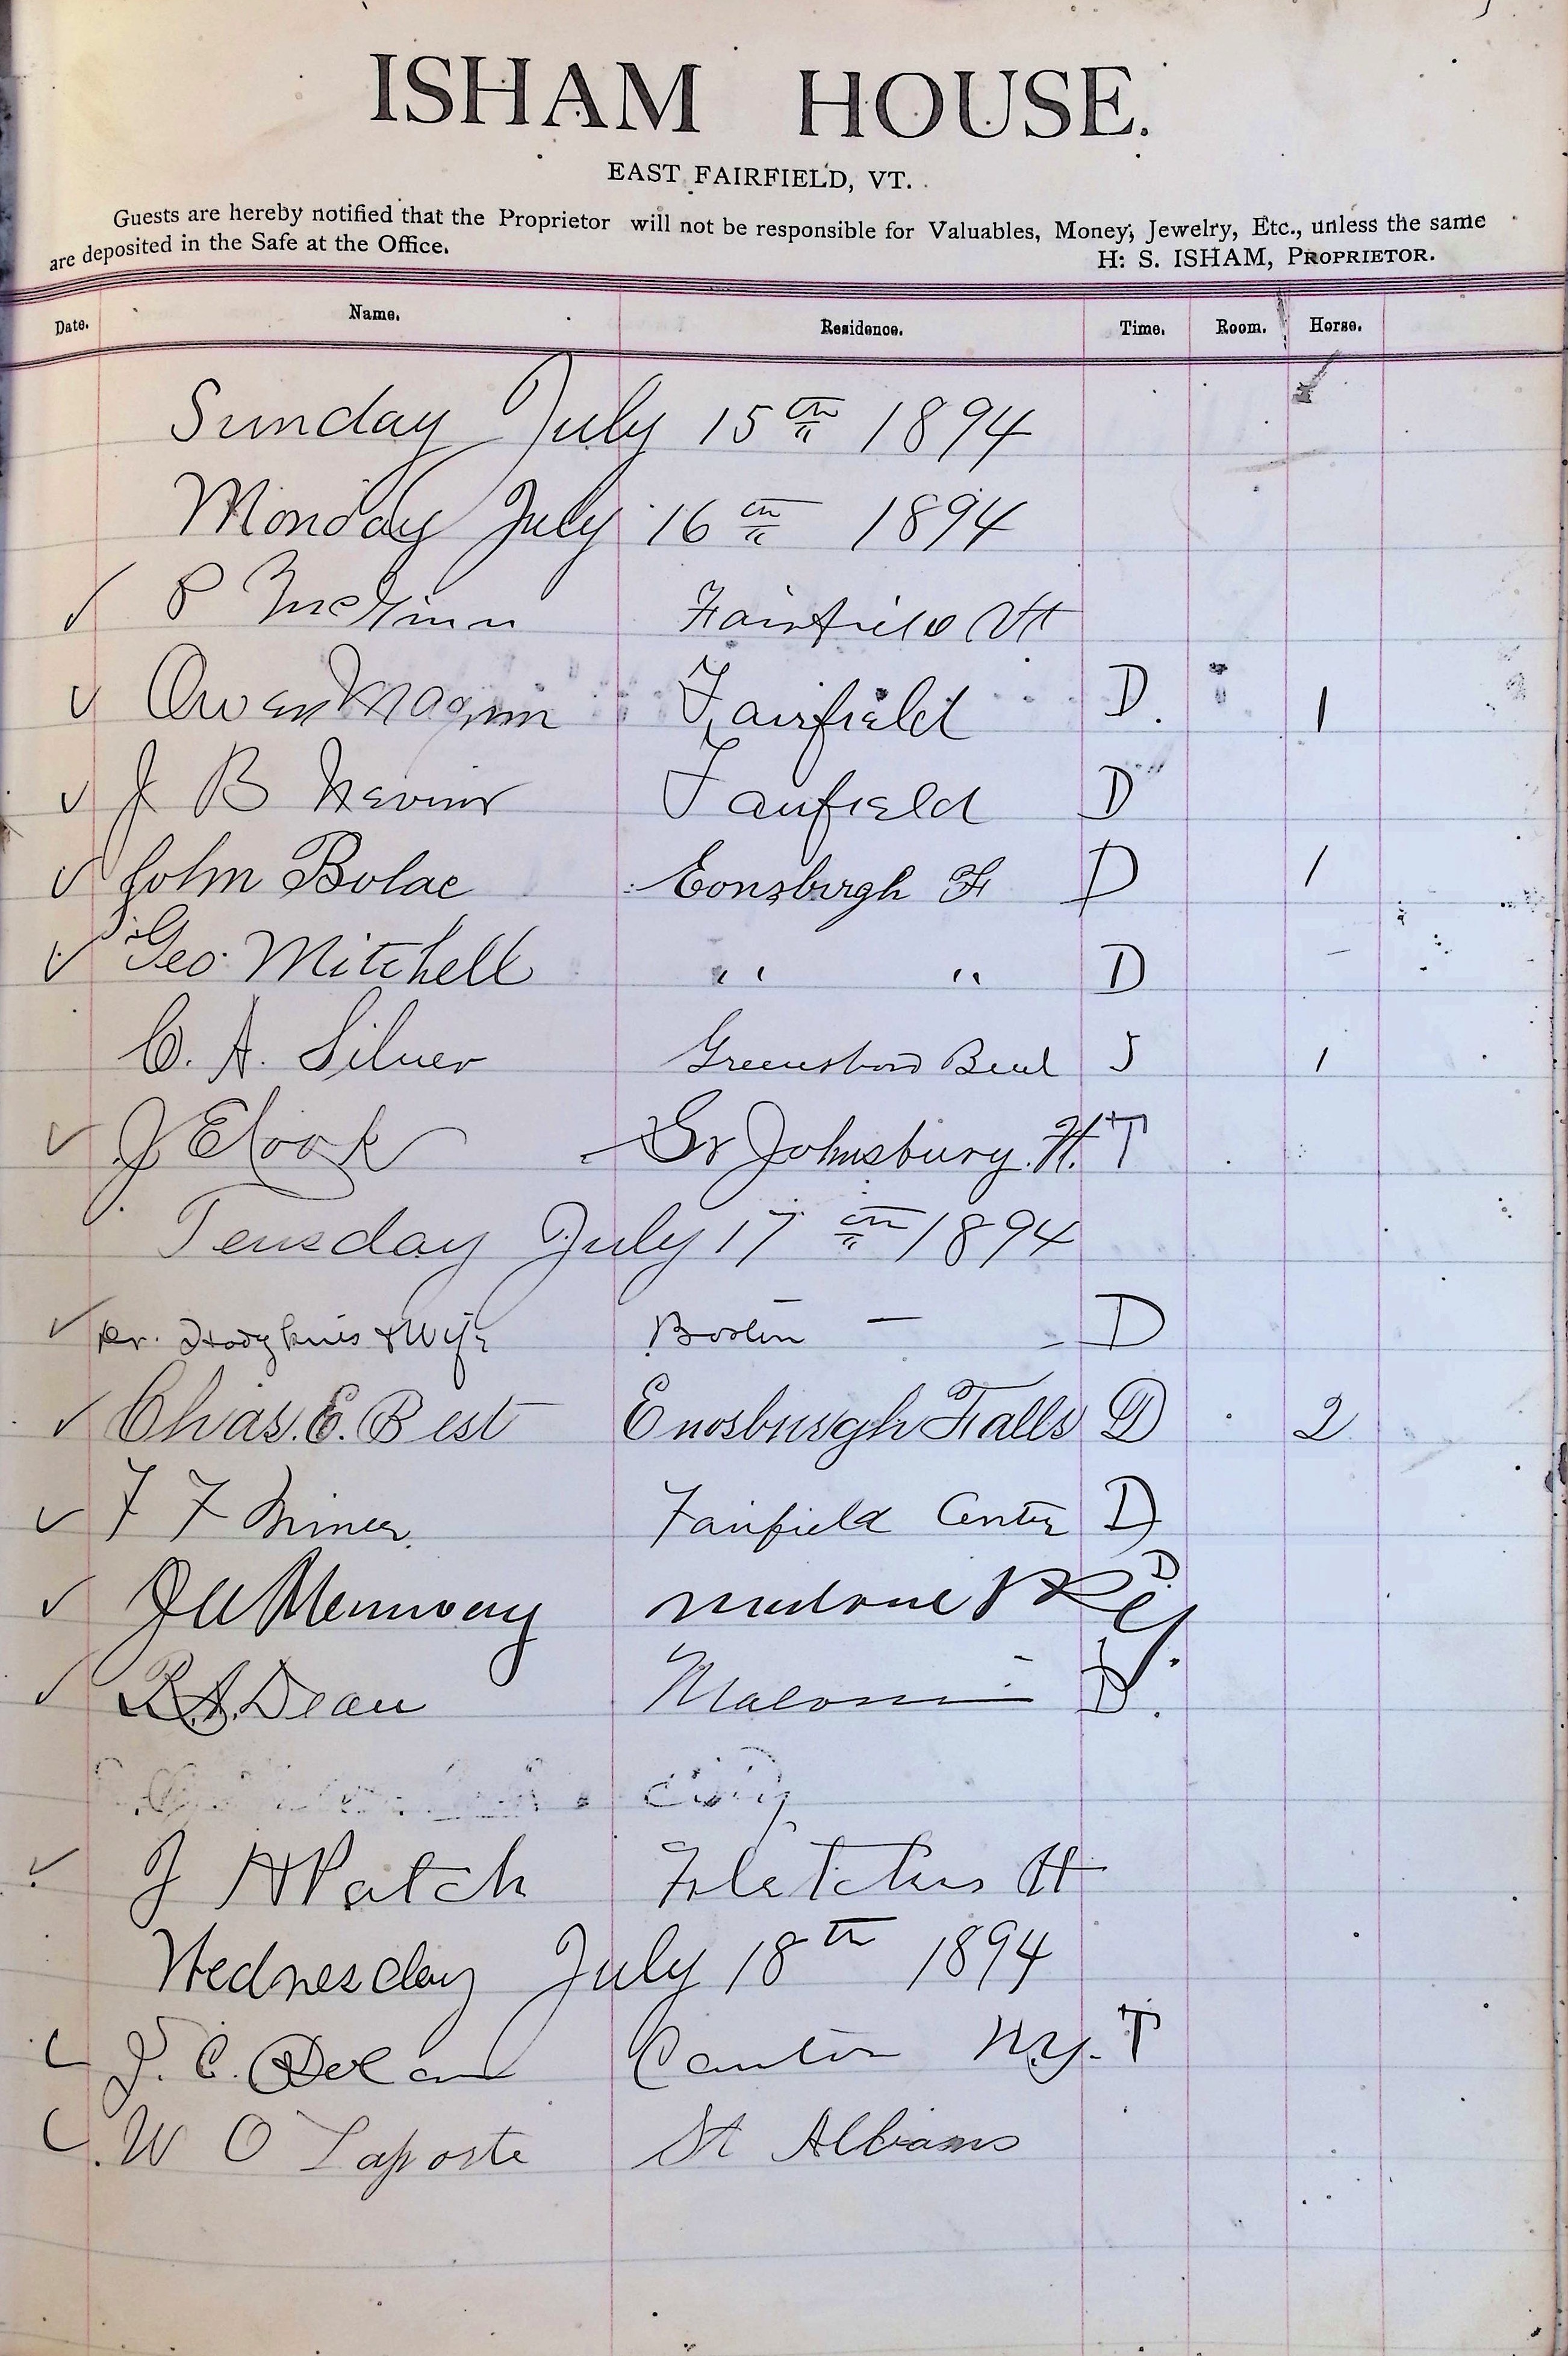 ISHAM HOUSE.
EAST FAIRFIELD, VT.
Guests are hereby notified that the Proprietor will not be responsible for Valuables, Money, Jewelry, Etc., unless the same
are deposited in the Safe at the Office.
H. S. ISHAM, PROPRIETOR.
Date. Name. Residence. Time. Room. Horse.
Sunday July 15th 1894
Monday July 16th 1894
✓ P McGinn Fairfield Vt
✓ Owen Maginn Fairfield D. 1
✓ J B Nevins Fairfield D
✓ John Bolac Eonsburgh F D 1
✓ Geo Mitchell " " D
C. A. Silver Greensboro Bend S 1
✓ J E Cook St Johnsbury Vt. T
Teusday July 17th 1894
✓ Dr. Hodgkins & Wife Boston D
✓ Chas. E. Best Enosburgh Falls D 2
✓ F F Niner Fairfield Center D
✓ D
✓ R. A. Dean Malone D.
City
✓ J H Patch Fletcher Vt
Wednesday July 18th 1894
J. C. Dolan Canton N.Y. T
W O Laporte St Albans